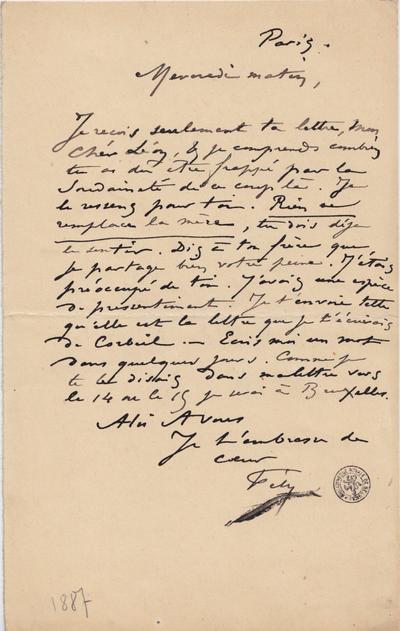 Paris.
Mercredi matin,
Je reçois seulement ta lettre, mon
cher Léon, & je comprends combien
tu as dû être frappé par la
soudaineté de ce coup là. Je
le ressens pour toi. Rien ne
remplace la mère, tu dois déjà
le sentir. Dis à ton frère que
je partage bien votre peine. J'étais
préoccupé de toi. J'avais une espèce
de pressentiment. Je t'envoie telle
qu'elle est la lettre que je t'écrivais
de Corbeil — Ecris moi un mot
dans quelques jours. Comme je
te le disais dans ma lettre vers
le 14 ou le 15 je serai à Bruxelles.
A Vous
Je t'embrasse de
cœur
Fély
1887